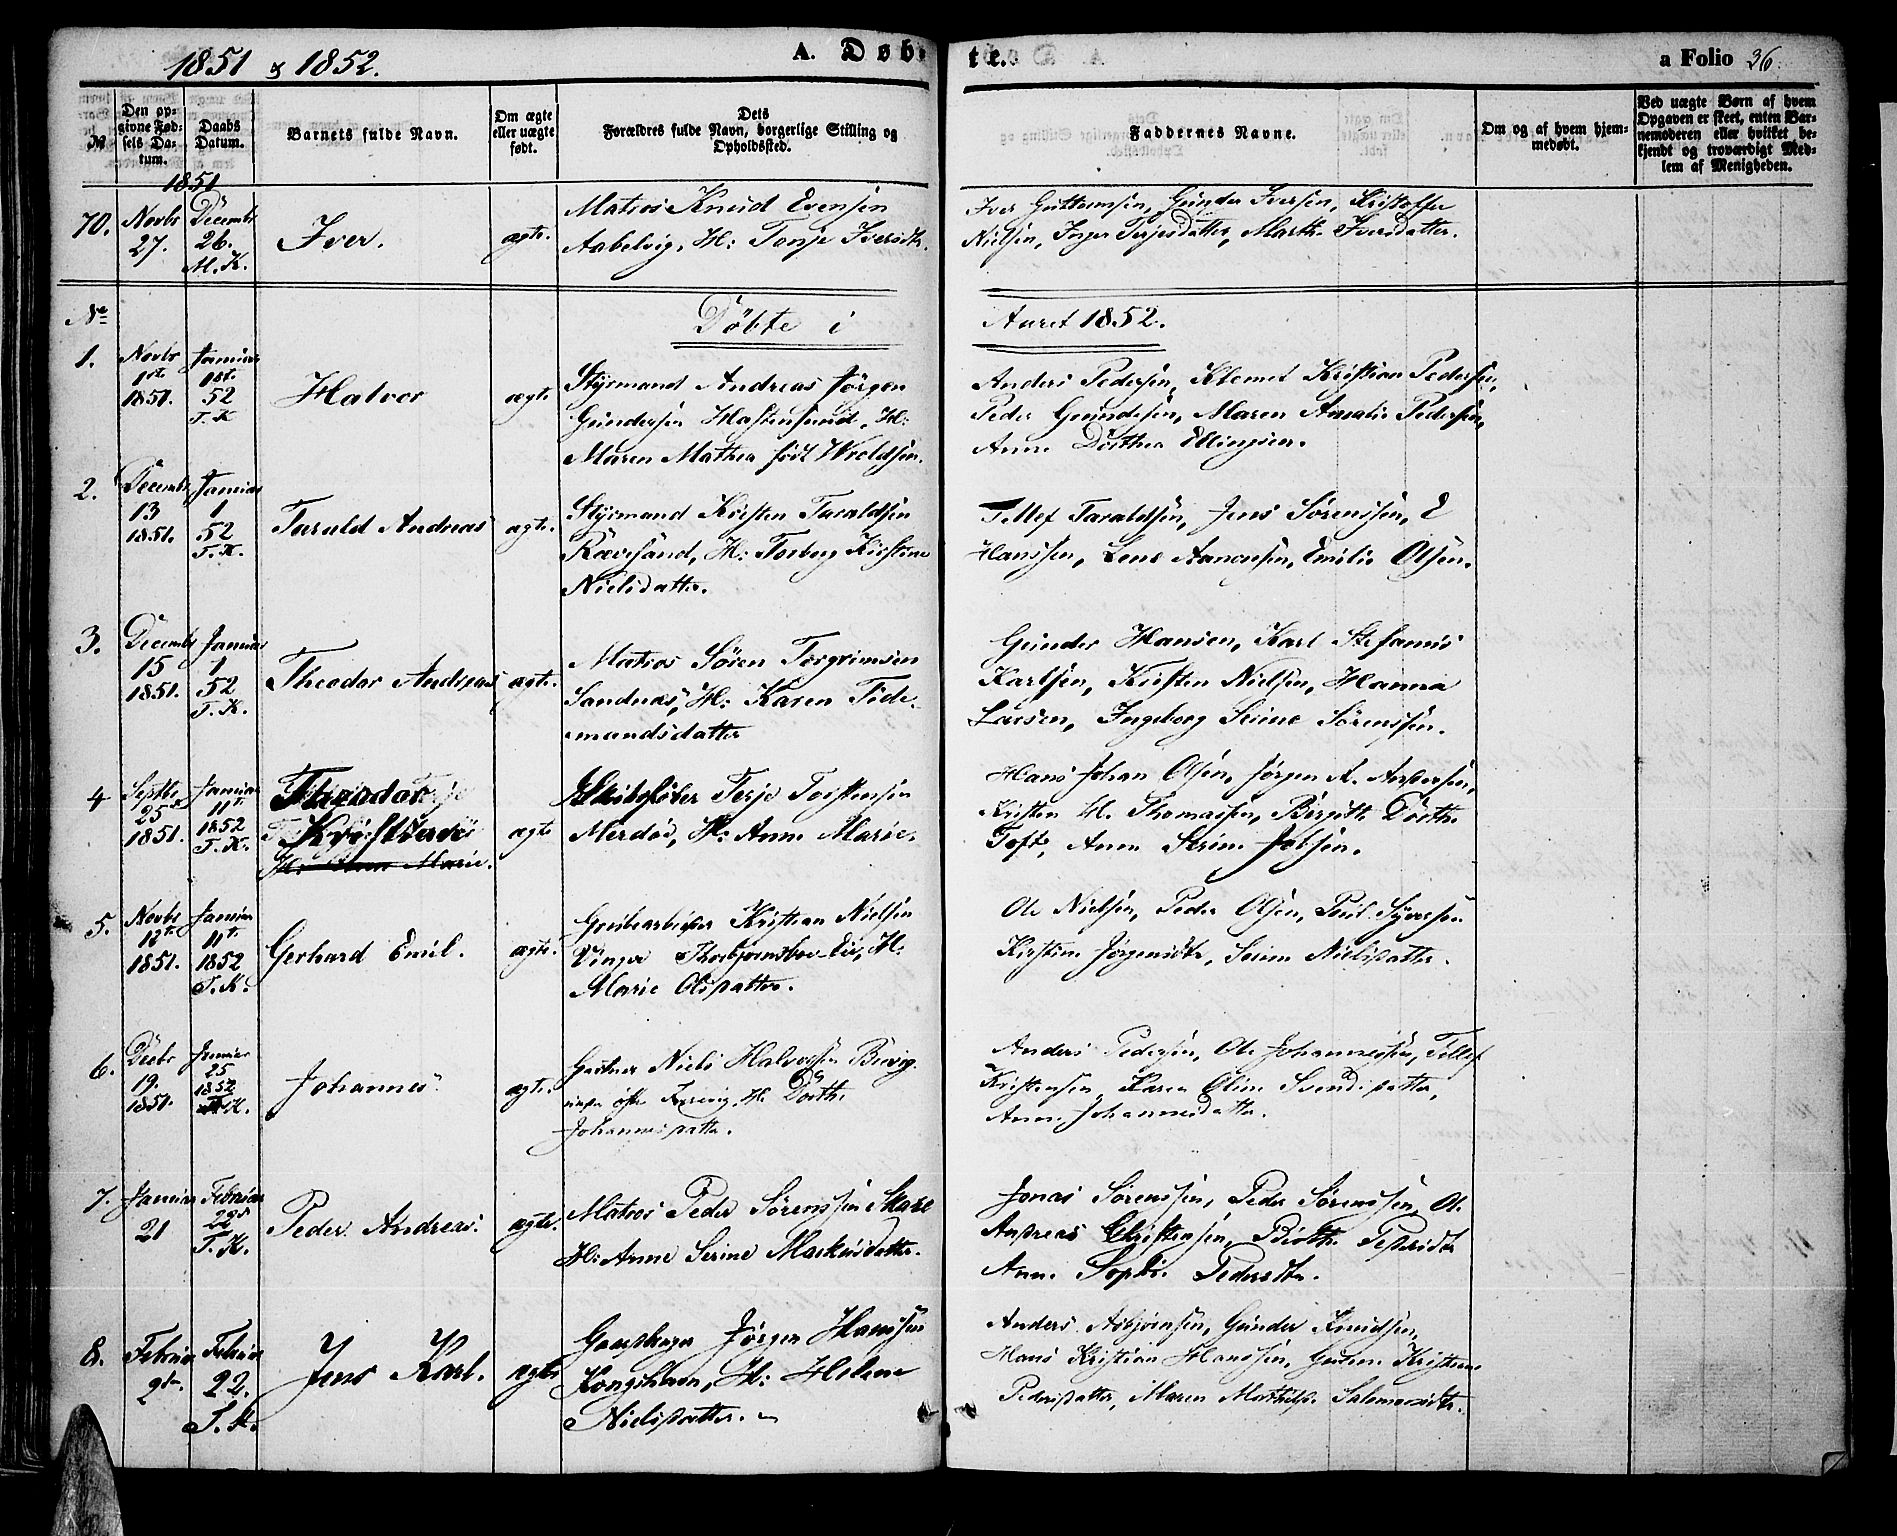 1851 & 1852.
A. Døb-
te.
a Folio 36.
№
Den op-
givne Fød-
sels Da-
tum.
Daabs
Datum.
Barnets fulde Navn.
Om ægte
eller uægte
født.
Dets
Forældres fulde Navn, borgerlige Stilling og
Opholdssted.
Faddernes Navne.
Om og af hvem hjem-
medøbt.
Ved uægte Børn af hvem
Opgaven er skeet, enten Bar-
nemoderen eller hvilket be-
kjendt og troværdigt Med-
lem af Menigheden.
1851
70.
Novbr
27.
Decembr
26.
M. K.
Iver.
ægte.
Matros Knud Evensen
H: Tonje Iversdtr.
Iver Guttormsen, Gunder Iversen, Kristoffer
Nielsen, Inger Terjesdatter, Marth. Iversdatter.
No
Döbte i
Aaret 1852.
1.
Novbr
1st
1851.
Januar
1st.
52
T. K
Halvor
ægte
Styrmand Andreas Jörgen
Gundersen Hastensund, H:
Maren Mathea födt Woldsen.
Anders Pedersen, Klemet Kristian Pedersen,
Peder Gundersen, Maren Amalie Pedersen,
Anne Dorthea Ellingsen.
2.
Decembr
13
1851.
Januar
1
52
T. K.
Tarald Andreas
ægte.
Styrmand Kristen Taraldsen
Rævesand, H: Torborg Kirstine
Nielsdatter.
Tellef Taraldsen, Jens Sörenssen, E
Hanssen, Lene Aanonsen, Emilie Olsen.
3.
Decembr
15
1851.
Januar
1
52
T. K.
Theodor Andreas
ægte.
Matros Sören Torgrimsen
Sandnæs, H: Karen Tide-
mandsdatter
Gunder Hansen, Karl Stefanus
Karlsen, Kirsten Nielsen, Hanna
Larsen, Ingeborg Serine Sörenssen.
4
Septbr
25
1851.
Januar
11t
1852
T. K.
H: Anne Marie.
ægte
Terje Torstensen
Merdöe, H: Anne Marie.
Hans Johan Olsen, Jörgen A. Andersen,
Kristen H. Thomassen, Birgitte Dorth.
Toft, Anne Serine Jobsen.
5.
Novbr
12t
1851.
Januar
11t.
1852
T. K.
Gerhard Emil.
ægte.
Grubearbeider Kristian Nielsen
H:
Marie Olsdatter.
Ole Nielsen, Peder Olsen, Poul Syversen
Kirstine Jörgensdtr, Serine Nielsdatter.
6.
Decbr
19.
1851.
Januar
25
1852
K.
Johannes.
ægte.
Niels Halvorsen
H. Dorth.
Johannesdatter.
Anders Pedersen, Ole Johannessen, Tellef
Kristensen, Karen Oline Svendsdatter,
Anne Johannesdatter.
7.
Januar
21
Februar
22
T. K.
Peder Andreas.
ægte.
Matros Peder Sörenssen Skare
H: Anne Serine Markusdatter.
Jonas Sörenssen, Peder Sörenssen, Ole
Andreas Christensen, Pedersdtr
Anne Sophie Pedersdtr.
8.
Februar
9de
Februar
22.
T. K.
Jens Karl.
ægte
Jörgen Hanssen
Kongshavn, H: Helene
Nielsdatter.
Anders Asbjørnsen, Gunder Knudsen,
Hans Kristian Hanssen, Kristine
Pedersdatter, Maren Mathilde Salomonsdtr.